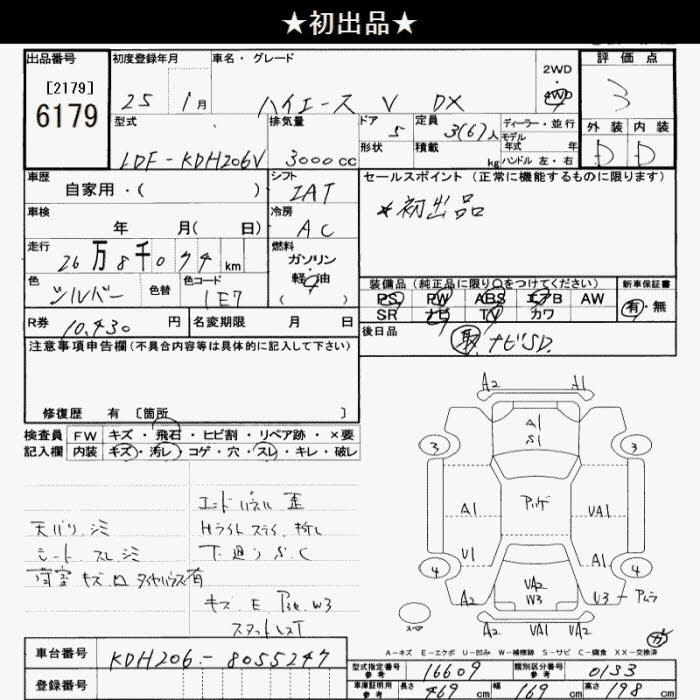 ★初出品★
出品番号
[2179]
6179
初度登録年月
25 1月
車名・グレード
ハイエース V DX
2WD
4WD
評価点
3
外装 内装
D D
型式
LDF-KDH206V
排気量
3000cc
ドア 5
形状
定員 3(6)人
積載 kg
ディーラー・並行
モデル
年式 年
ハンドル 左・右
車歴
自家用・( )
シフト
IAT
セールスポイント(正常に機能するものに限ります)
*初出品
車検
年 月( 日)
冷房
AC
走行
26万8千074km
燃料
ガソリン
軽油
( )
色
シルバー
色替
色コード
1E7
装備品(純正品に限り○をつけてください)
PS PW ABS エアB AW
SR ナビ TV カワ
新車保証書
有・無
R券 10,430 円
名変期限 月 日
後日品
取 ナビSD.
注意事項申告欄(不具合内容等は具体的に記入して下さい)
修復歴 有 〔箇所 〕
検査員
記入欄
FW キズ・飛石・ヒビ割・リペア跡・×要
内装 キズ・汚レ・コゲ・穴・スレ・キレ・破レ
エンドパネル 歪
天バリ シミ
Hライト スライ 折レ
シート スレ シミ
下廻り S.C
荷室 キズ ロ タイヤハウス有
キズ. E. W3
スタットレスT
A2 A1
3 A1 S1 3
A1 UA1
U1 A1
4 UA2 W3 4
A2 U3
スペア
A2 UA1 UA2
A-キズ E-エクボ U-凹み W-補修跡 S-サビ C-腐食 XX-交換済
車台番号
KDH206-8055247
登録番号
型式指定番号
参考
16609
類別区分番号
参考
0133
車庫証明用
参考
長さ 469 cm
幅 169 cm
高さ 198 cm